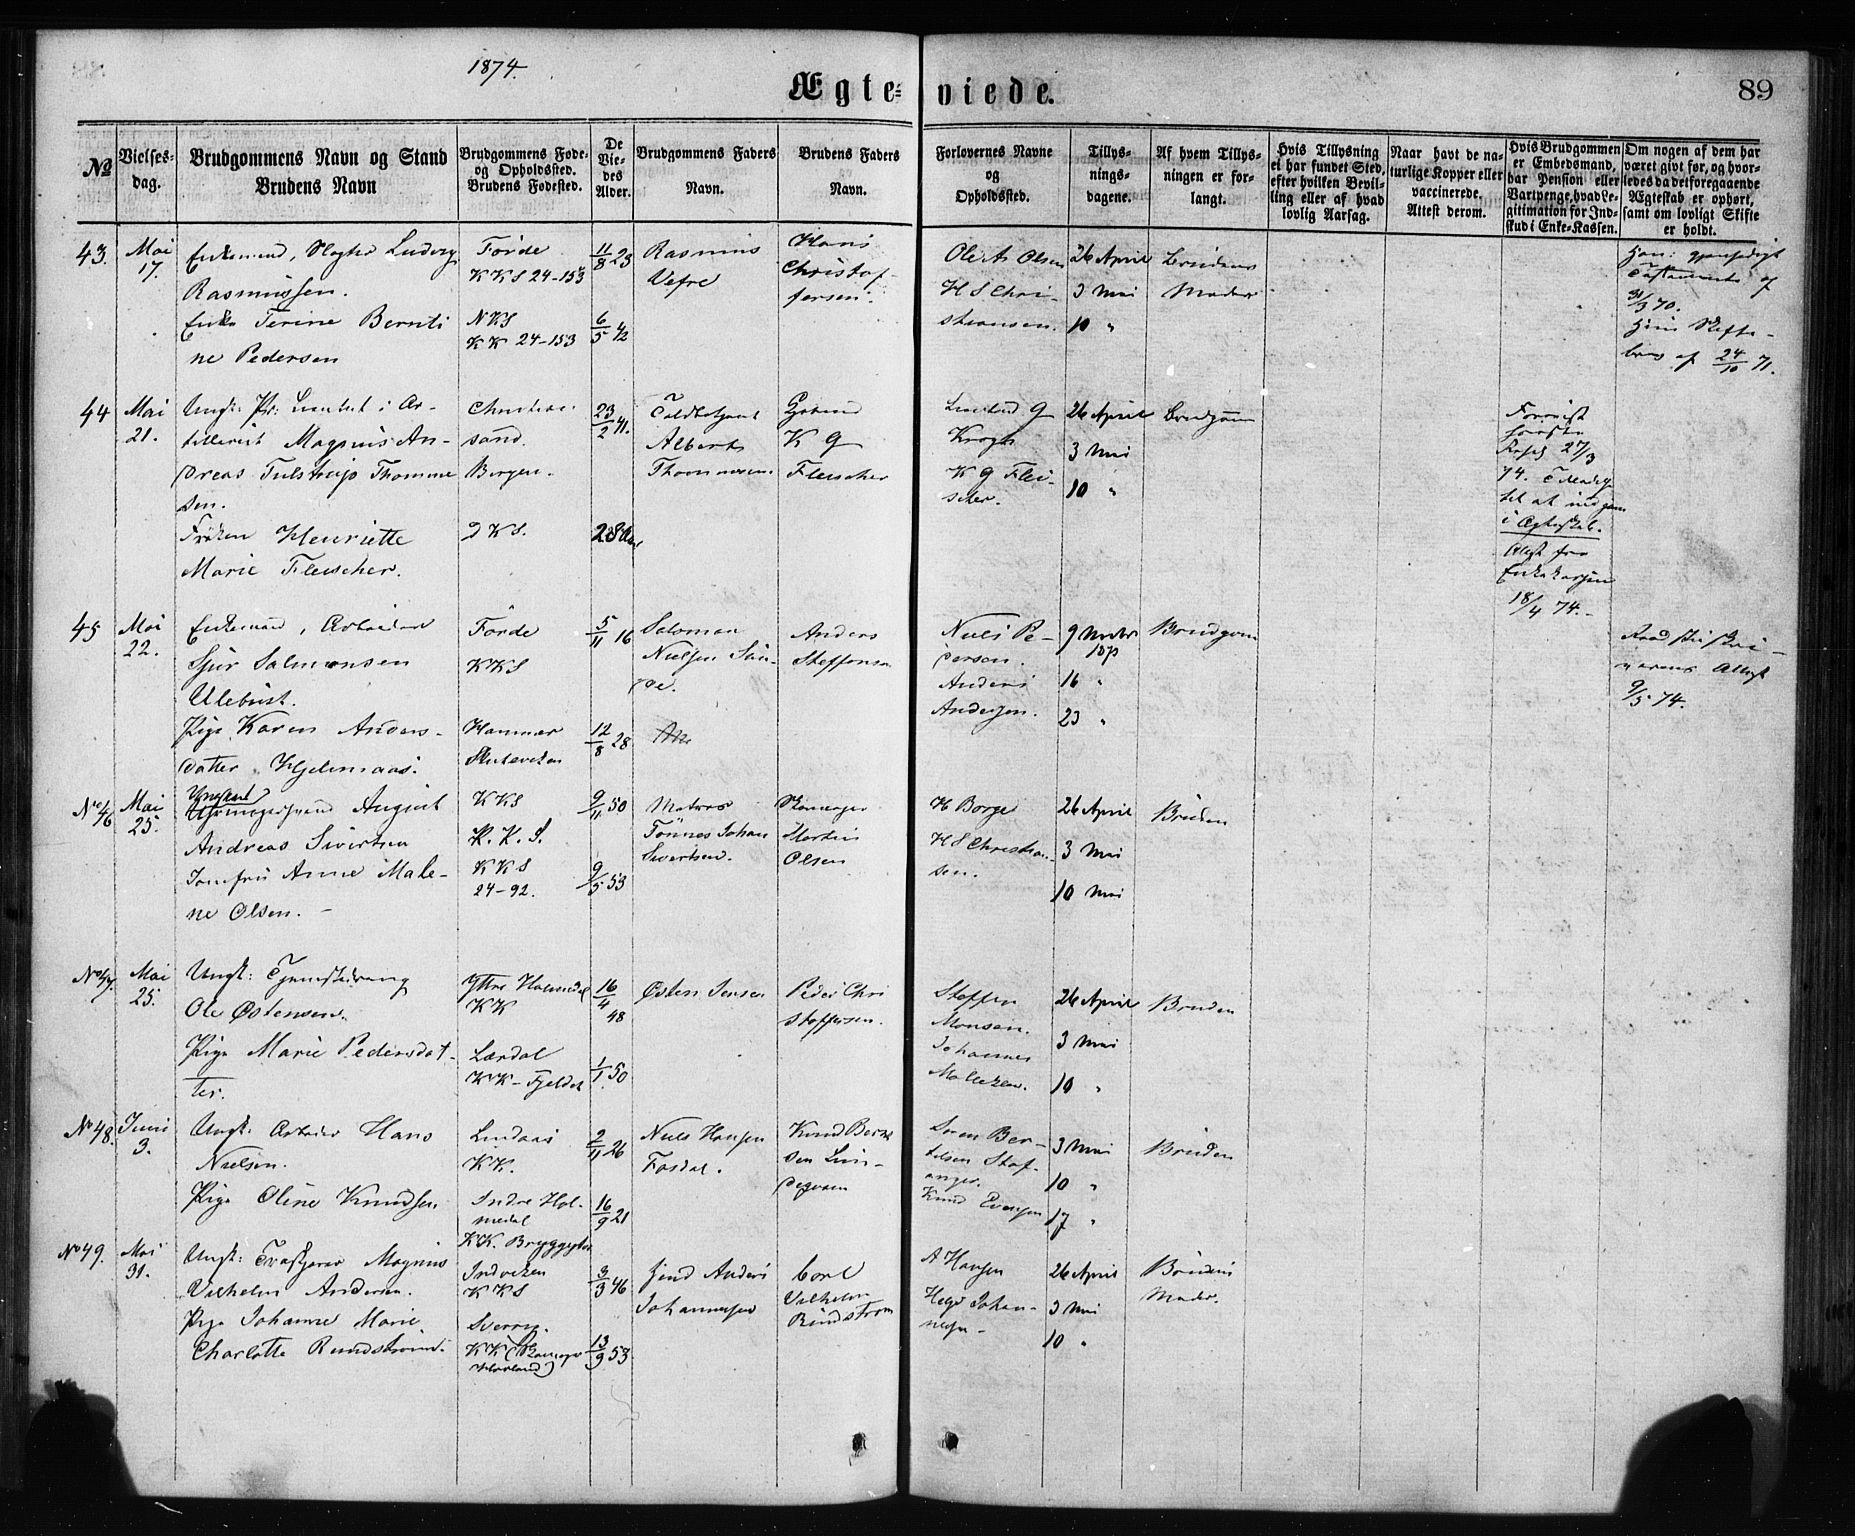 1874.
Ægte= viede.
89
№
Vielses-
dag.
Brudgommens Navn og Stand
Brudens Navn
Brudgommens Føde-
og Opholdssted.
Brudens Fødested.
De
Vie-
des
Alder.
Brudgommens Faders
Navn.
Brudens Faders
Navn.
Forlovernes Navne
og
Opholdssted.
Tillys-
nings-
dagene.
Af hvem Tillys-
ningen er for-
langt.
Hvis Tillysning
ei har fundet Sted,
efter hvilken Bevil-
ling eller af hvad
lovlig Aarsag.
Naar havt de na-
turlige Kopper eller
vaccinerede.
Attest derom.
Hvis Brudgommen
er Embedsmand,
har Pension eller
Vartpenge, hvad Le-
gitimation for Ind-
skud i Enke-Kassen.
Om nogen af dem har
været gift før, og hvor-
ledes da det foregaaende
Ægteskab er ophørt,
samt om lovligt Skifte
er holdt.
43. Mai 17.
Enkemand, Ludvig
Rasmussen.
Enke Terine Bernti
ne Pedersen
Förde
KKS 24-153
NKS
KK 24-153
11/8 23
6/5 42
Rasmus
Vefre
Hans
Christof-
fersen.
Ole As Olsen
H S Chri-
stiansen.
26 April
3 Mai
10 "
Brudens
Moder
Testamente af
31/3 70.
24/10 71.
44 Mai 21.
Ungk: Pr: Lieutnt i Ar-
tilleriet Magnus An-
dreas Tulstrup Thomme
sen.
Fröken Henriette
Marie Fleischer.
Christian-
sand.
Bergen.
DKS.
23/2 41.
28 Aar
Albert
Thommesen
K G
Fleischer
G
Krogh
K G Flei-
scher.
26 April
3 Mai
10 "
Brudgom
27/3
74.
til at indgaa
i Ægteskab.
Attest fra
Enkekassen
18/4 74.-
45 Mai 22.
Enkemand, Arbeider
Sjur Salmonsen
Ulebust.
Pige Karen Anders-
datter Hjelmaas.
Förde
KKS
Hammer
5/11 16
12/8 28
Salomon
Nielsen Sun-
de.
Anders
Steffensen
Niels Pe-
dersen.
Anders
Andersen.
9 Novbr
1873
16 "
23 "
Brudgom
Attest
9/5 74.
No 46 Mai 25.
Ungkarl
August
Andreas Sivertsen
Jomfru Anne Male-
ne Olsen. -
KKS
K. K. S.
KKS
24-92.
9/11 50
9/5 53
Matros
Tönnes Johan
Sivertsen.
Martin
Olsen
H Borge
H S Christian-
sen.
26 April
3 Mai
10 Mai
Bruden
No 47. Mai 25.
Ungk: Tjenestedreng
Ole Østensen.
Pige Marie Pedersdat-
ter.
Yttre Holmedal
KK
Lærdal
KK-Fjeldet
16/4 48
1/1. 50
Østen Jensen
Peder Chri
stoffersen.
Steffen
Monsen.
Johannes
26 April
3 Mai
10 "
Bruden
No 48. Juni 3.
Ungk: Arbeider Hans
Nielsen.
Pige Oline Knudsen
Lindaas
KK.
Indre Hol-
medal
KK. Bryggesp
2/11 26
16/9 21
Niels Hansen
Fosdal.
Knud
Soren Ber-
telsen Staf-
anger.
Knud
3 Mai
10 "
17 "
Bruden
No 49. Mai 31.
Ungk: Magnus
Vilhelm Andersen.
Pige Johanne Marie
Charlotte Rundström.
Indviken
KKS
Sverrig.
KK
3/3 46
13/9 53
Anders
Johannesen
Carl
Vilhelm
Rundström
A Hansen
Helge Johan-
nesen-
26 April
3 Mai
10 "
Brudens
Moder.